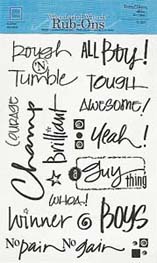 Wonderful Words
Rub-Ons
Rough
'N'
Tumble
All Boy!
TOUGH
Awesome!
COURAGE
Champ
Brilliant
Yeah!
a guy
thing
WHOA!
Winner @ Boys
No pain No gain